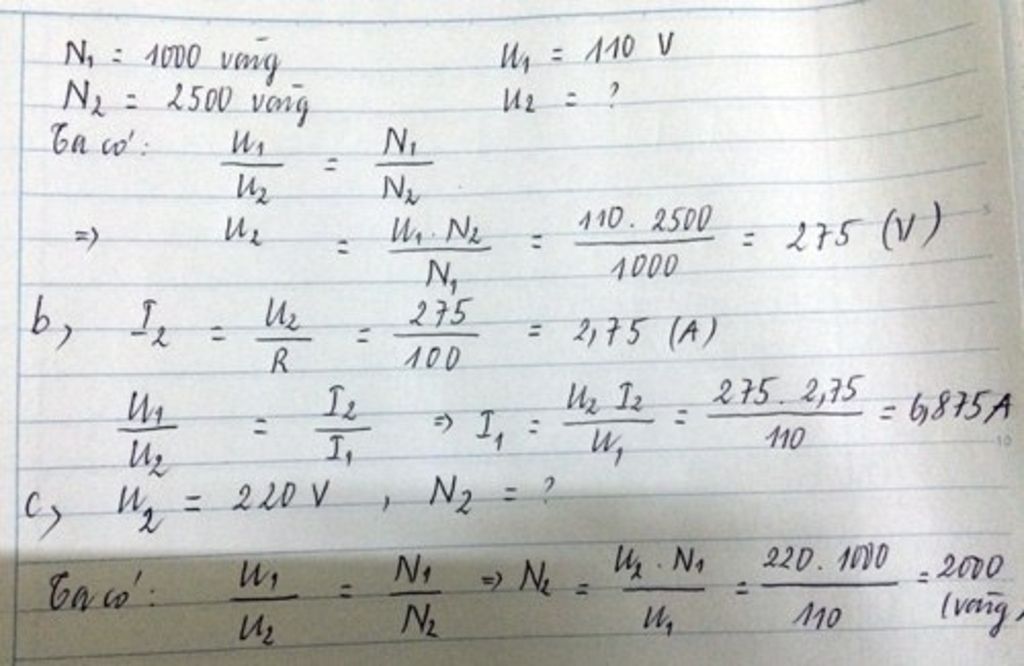 N₁ = 1000 vòng U₁ = 110 V
N₂ = 2500 vòng U₂ = ?
Ta có: U₁/U₂ = N₁/N₂
=> U₂ = U₁.N₂/N₁ = 110.2500/1000 = 275 (V)
b, I₂ = U₂/R = 275/100 = 2,75 (A)
U₁/U₂ = I₂/I₁ => I₁ = U₂ I₂/U₁ = 275.2,75/110 = 6,875A
c, U₂ = 220 V , N₂ = ?
Ta có: U₁/U₂ = N₁/N₂ => N₂ = U₂.N₁/U₁ = 220.1000/110 = 2000
(vòng)